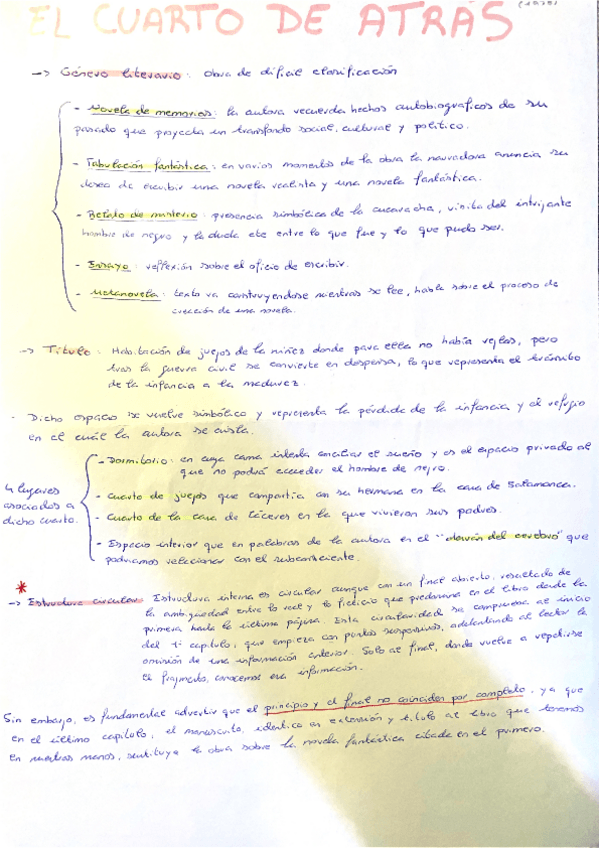 (1978)
EL CUARTO DE ATRÁS
-> Género literario: Obra de difícil clasificación
- Novela de memorias: la autora recuerda hechos autobiográficos de su
pasado que proyecta un transfondo social, cultural y político.
- Fabulación fantástica: en varios momentos de la obra la narradora anuncia su
deseo de escribir una novela realista y una novela fantástica.
- Relato de misterio: presencia simbólica de la cucaracha, visita del intrigante
hombre de negro y la duda entre lo que fue y lo que pudo ser.
- Ensayo: reflexión sobre el oficio de escribir.
- Metanovela: texto va construyendose mientras se lee, habla sobre el proceso de
creación de una novela.
-> Título: Habitación de juejos de la niñez donde para ella no había reglas, pero
tras la guerra civil se convierte en despensa, lo que representa el tránsito
de la infancia a la madurez.
- Dicho espacio se vuelve simbólico y representa la pérdida de la infancia y el refugio
en el cuál la autora se aisla.
4 lugares
asociados a
dicho cuarto.
- Dormitorio: en cuya cama intenta conciliar el sueño y es el espacio privado al
que no podrá acceder el hombre de negro.
- Cuarto de juejos que compartía con su hermana en la casa de Salamanca.
- Cuarto de la casa de Cáceres en la que vivieron sus padres.
- Espacio interior que en palabras de la autora en el "desván del cerebro" que
podríamos relacionar con el subconsciente.
*
-> Estructura circular: Estructura interna es circular aunque con un final abierto, resultado de
la ambigüedad entre lo real y lo ficticio que predomina en el libro desde la
primera hasta la última página. Esta circularidad se comprueba al inicio
del 1º capítulo, que empieza con puntos suspensivos, adelantando al lector la
omisión de una información anterior. Solo al final, donde vuelve a repetirse
el fragmento, conocemos esa información.
Sin embargo, es fundamental advertir que el principio y el final no coinciden por completo, ya que
en el último capítulo, el manuscrito, idéntico en extensión y título al libro que tenemos
en nuestras manos, sustituye a la obra sobre la novela fantástica citada en el primero.